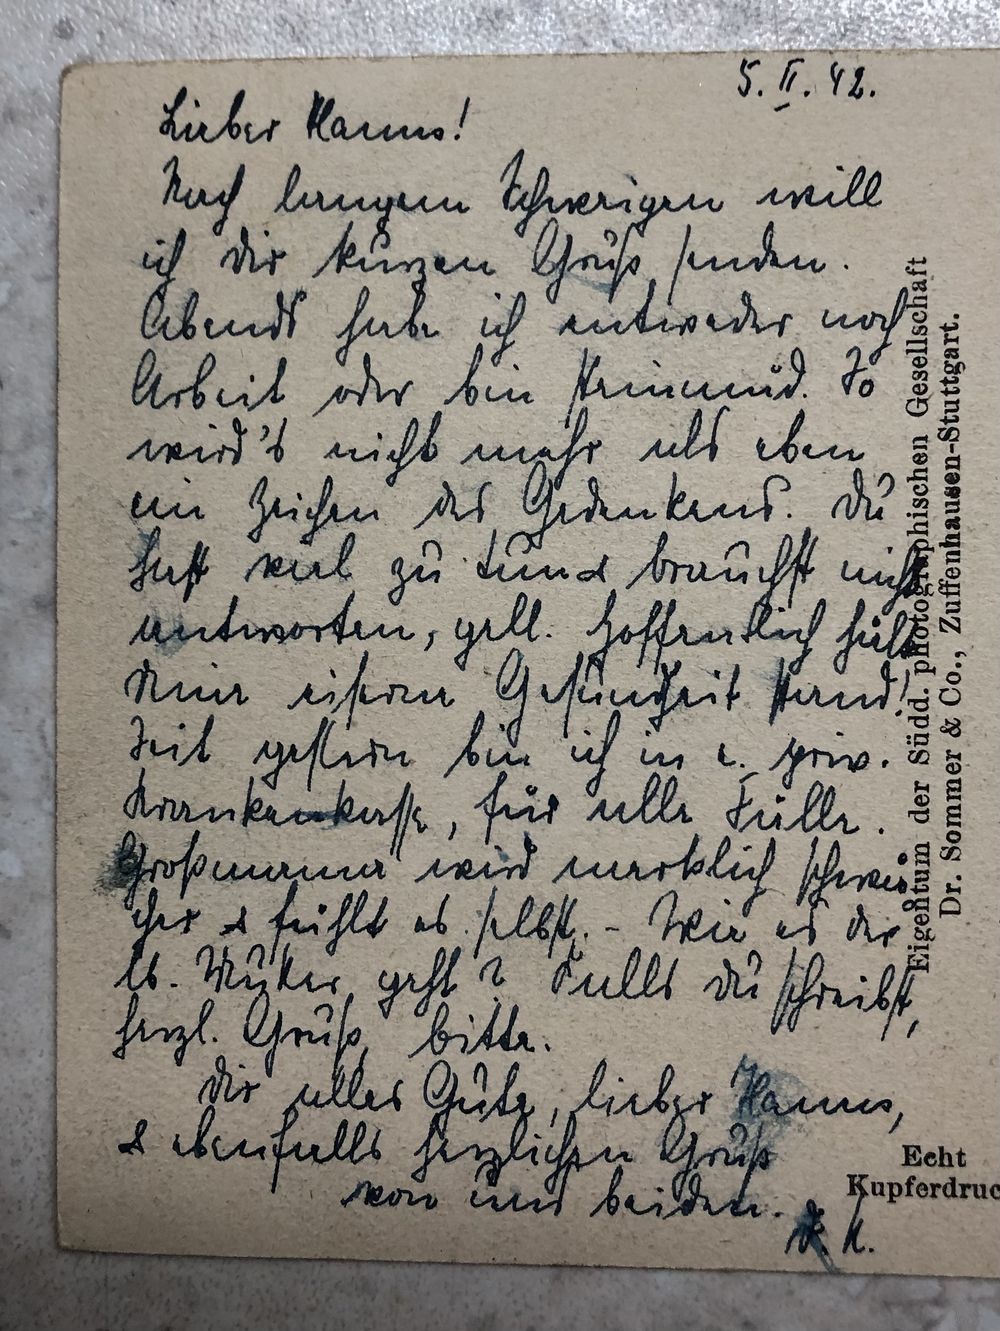 5. II. 42.
Lieber Hanns!
Nach langem Schweigen will
ich Dir kurzen Gruß senden.
Abends habe ich entweder noch
Arbeit oder bin hundemüd. So
wird's nicht mehr als eben
ein Zeichen des Gedenkens. Du
hast viel zu tun & brauchst nicht
antworten, gell. Hoffentlich hält
Deine eiserne Gesundheit stand!
Seit gestern bin ich in e. priv.
Krankenkasse, für alle Fälle.
Großmama wird merklich schwä-
cher & fühlt es selbst. - Wie es der
lb. Mutter geht? Falls Du schreibst,
herzl. Gruß bitte.
Dir alles Gute, lieber Hanns,
& ebenfalls herzlichen Gruß
von uns beiden.
K.
Eigentum der Südd. photographischen Gesellschaft
Dr. Sommer & Co., Zuffenhausen-Stuttgart.
Echt
Kupferdruc